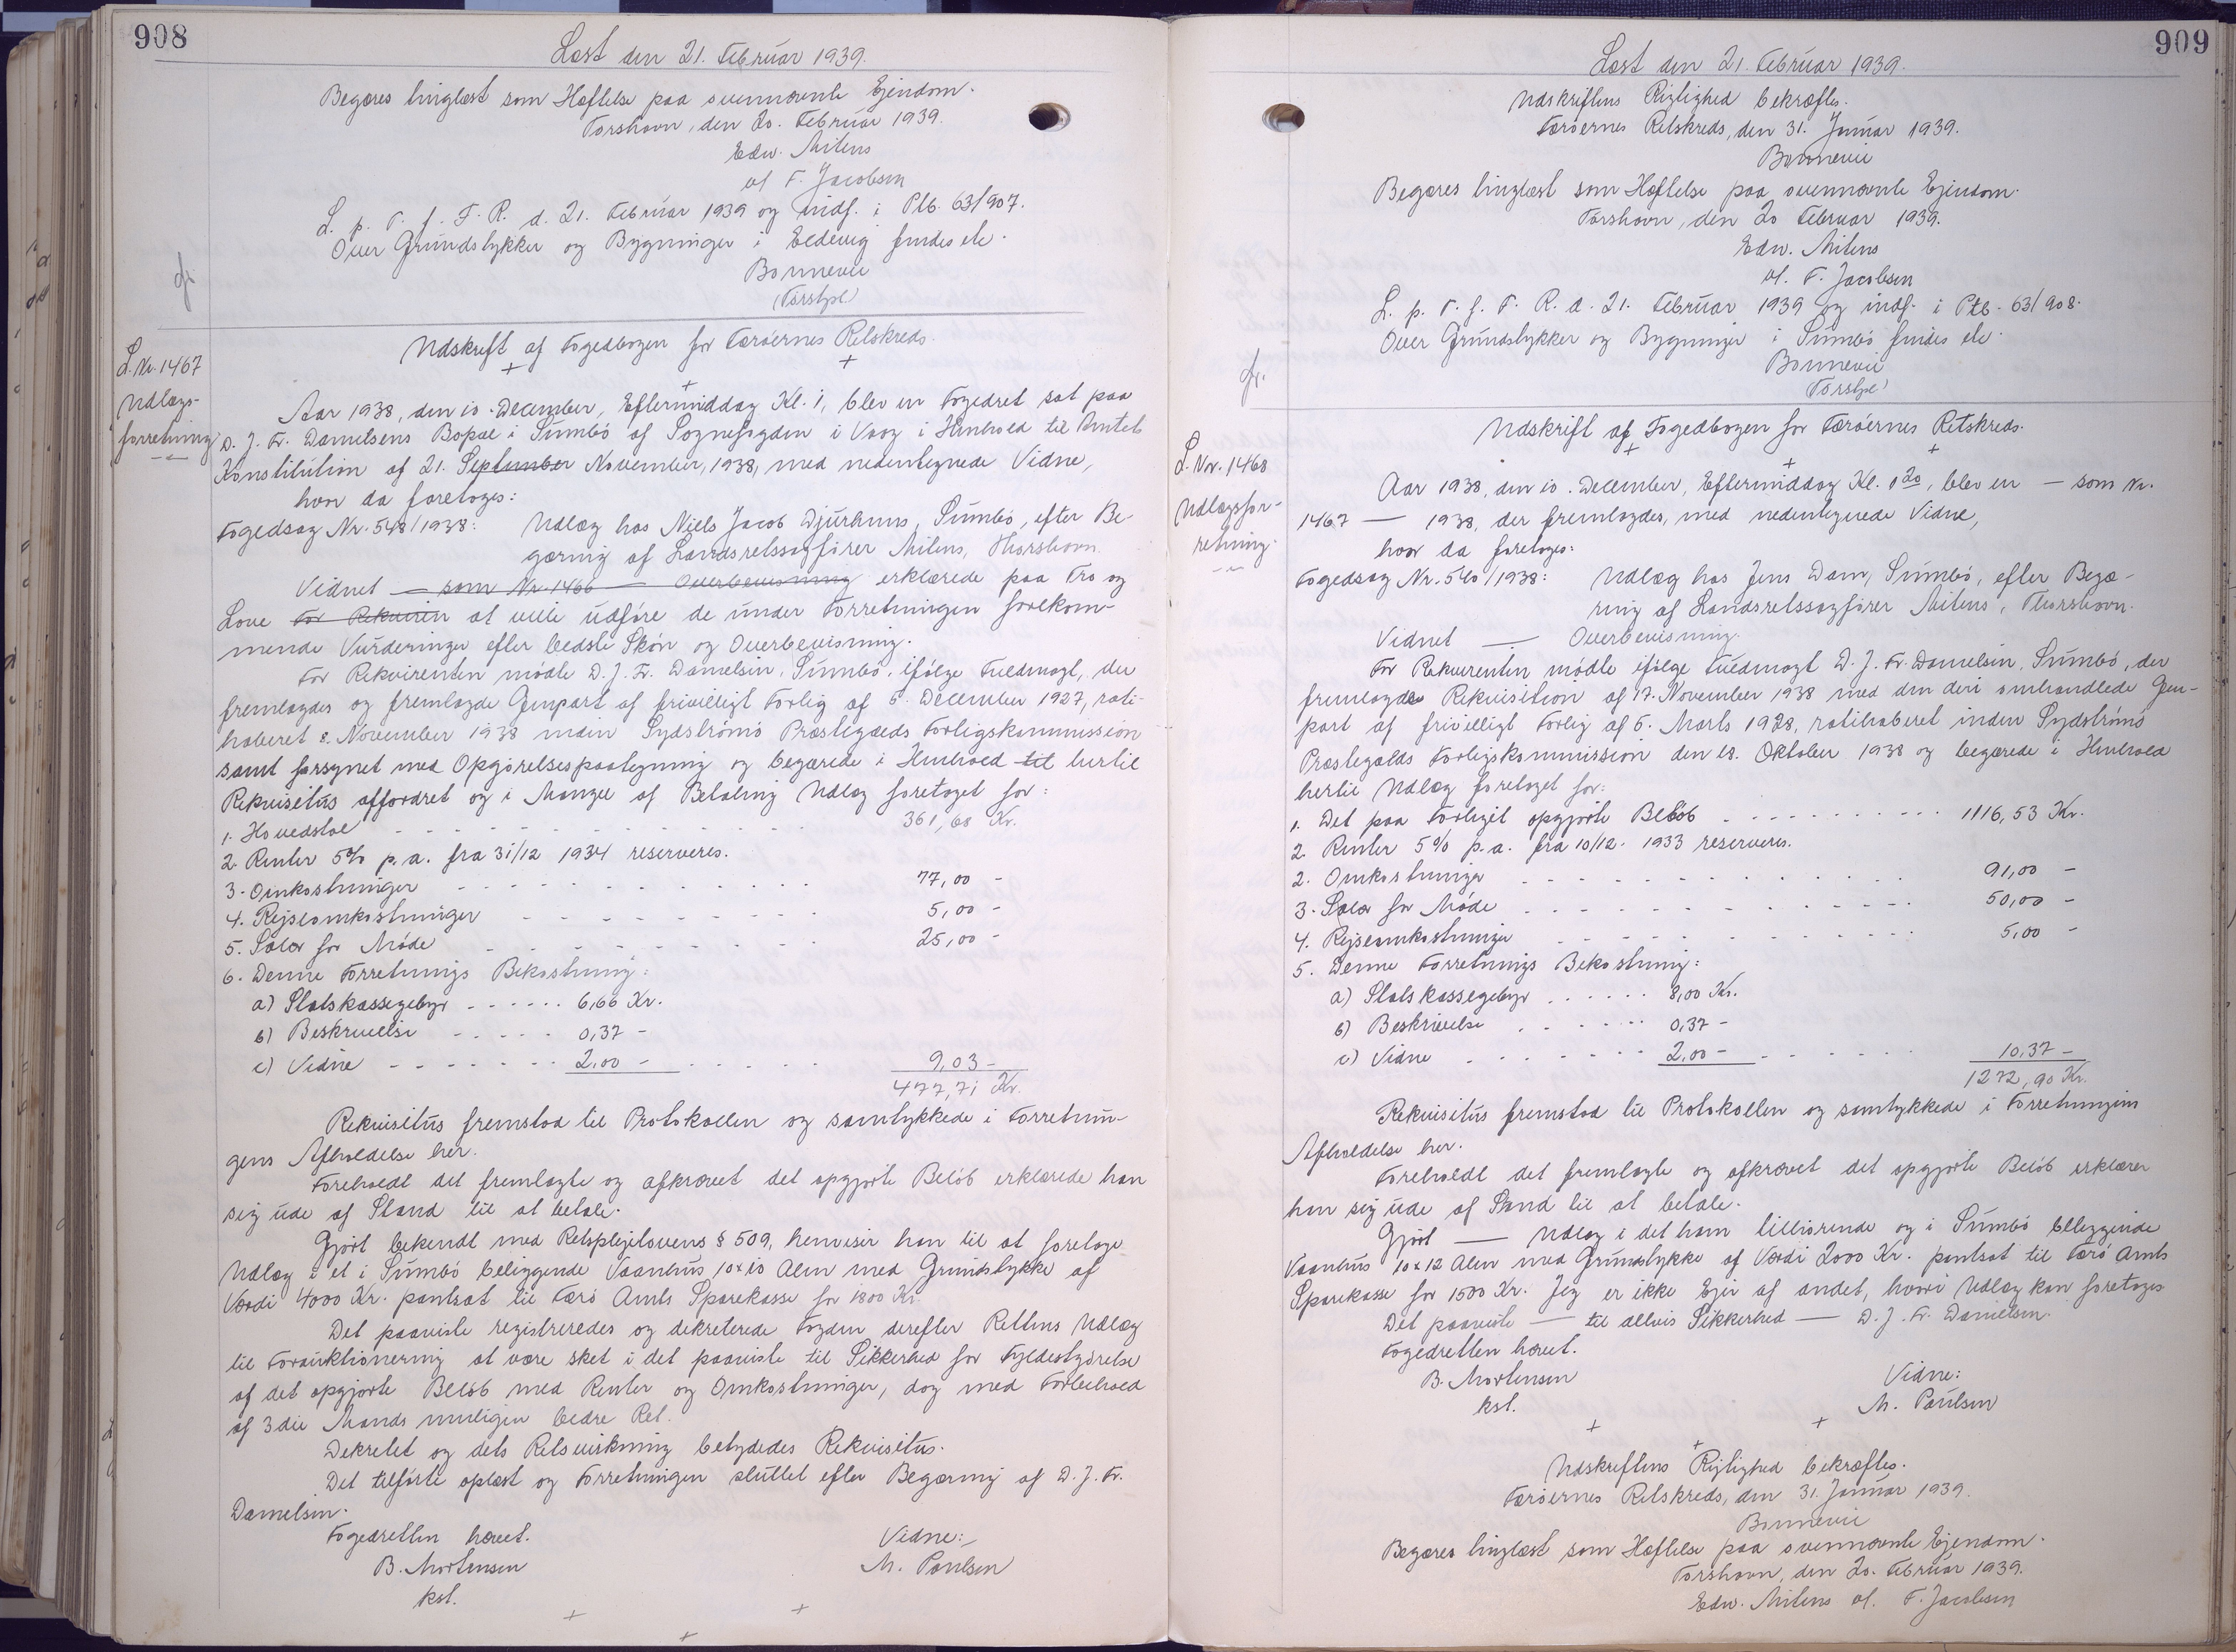 908
Læst den 21. Februar 1939.
Begæres tinglæst som Hæftelse paa ovennævnte Ejendom.
Torshavn, den 20. Februar 1939.
Edw. Mitens
v/ F. Jacobsen
L. p. T. f. F. R. d. 21. Februar 1939 og indf. i Ptb. 63/907.
Over Grundstykker og Bygninger i Eldevig findes ete.
Bonnevie
(Forstpl)
Udskrift af Fogedbogen for Færøernes Retskreds.
L. Nr. 1467
Udlægs-
forretning
Aar 1938, den 10. December, Eftermiddag Kl. 1, blev en Fogedret sat paa
D. J. Fr. Danielsens Bopæl i Sumbö af Sognefogden i Vaag i Henhold til Amtets
Konstitution af 21. September November, 1938, med nedentegnede Vidne,
hvor da foretoges:
Fogedsag Nr. 548/1938: Udlæg hos Niels Jacob Djurhuus, Sumbö, efter Be-
gæring af Landsretssagförer Mitens, Thorshavn.
Vidnet — som Nr. 1466 — Overbevisning erklærede paa Tro og
Love For Rekviren at ville udföre de under Forretningen forekom-
mende Vurderinger efter bedste Skön og Overbevisning.
For Rekvirenten mödte D. J. Fr. Danielsen, Sumbö, ifölge Fuldmagt, der
fremlagdes og fremlagde Genpart af frivilligt Forlig af 5. December 1927, rati-
haberet 8. November 1938 inden Sydströmö Præstegælds Forligskommission
samt forsynet med Opgörelsespaategning og begærede i Henhold til hertil
Rekvisitus affordret og i Mangel af Betaling Udlæg foretaget for:
1. Hovedstol - - - - - - - - - - - 361,68 Kr.
2. Renter 5% p.a. fra 31/12 1934 reserveres.
3. Omkostninger - - - - - - - - - - 77,00 -
4. Rejseomkostninger - - - - - - - - 5,00 -
5. Salær for Möde - - - - - - - - - 25,00 -
6. Denne Forretnings Bekostning:
a) Statskassegebyr - - - - - - 6,66 Kr.
b) Beskrivelse - - - - - 0,37 -
c) Vidne - - - - - - - 2,00 - - - - - - 9,03 -
477,71 Kr.
Rekvisitus fremstod til Protokollen og samtykkede i Forretnin-
gens Afholdelse her.
Foreholdt det fremlagte og afkrævet det opgjorte Belöb erklærede han
sig ude af Stand til at betale.
Gjort bekendt med Retsplejelovens § 509, henviser han til at foretage
Udlæg i et i Sumbö beliggende Vaanhus 10x10 Alen med Grundstykke af
Værdi 4000 Kr. pantsat til Færö Amts Sparekasse for 1800 Kr.
Det paaviste registreredes og dekreterede Fogden derefter Rettens Udlæg
til Forauktionering at være sket i det paaviste til Sikkerhed for Fyldestgörelse
af det opgjorte Belöb med Renter og Omkostninger, dog med Forbehold
af 3die Mands muligen bedre Ret.
Dekretet og dets Retsvirkning betydedes Rekvisitus.
Det tilförte oplæst og Forretningen sluttet efter Begæring af D. J. Fr.
Danielsen.
Fogedretten hævet.
B. Mortensen
kst.
Vidne:
M. Poulsen
909
Læst den 21. Februar 1939.
Udskriftens Rigtighed bekræftes.
Færöernes Retskreds, den 31. Januar 1939.
Bonnevie
Begæres tinglæst som Hæftelse paa ovennævnte Ejendom.
Torshavn, den 20 Februar 1939.
Edw. Mitens
v/. F. Jacobsen
L. p. T. f. F. R. d. 21. Februar 1939 og indf. i Ptb. 63/908.
Over Grundstykker og Bygninger i Sumbö findes ete.
Bonnevie
(Forstpl)
Udskrift af Fogedbogen for Færöernes Retskreds.
L. Nr. 1468
Udlægsfor-
retning.
Aar 1938, den 10. December, Eftermiddag Kl. 1 20, blev en — som Nr.
1467 — 1938, der fremlagdes, med nedentegnede Vidne,
hvor da foretoges:
Fogedsag Nr. 540/1938: Udlæg hos Jens Dam, Sumbö, efter Begæ-
ring af Landsretssagförer Mitens, Thorshavn.
Vidnet — Overbevisning.
For Rekvirenten mödte ifölge Fuldmagt D. J. Fr. Danielsen, Sumbö, der
fremlagde Rekvisition af 17. November 1938 med den deri omhandlede Gen-
part af frivilligt Forlig af 5. Marts 1928, ratihaberet inden Sydströmö
Præstegælds Forligskommission den 18. Oktober 1938 og begærede i Henhold
hertil Udlæg foretaget for:
1. Det paa Forliget opgjorte Belöb - - - - - - - - - - 1116,53 Kr.
2. Renter 5% p.a. fra 10/12. 1933 reserveres.
2. Omkostninger - - - - - - - - - - 91,00 -
3. Salær for Möde - - - - - - - - - 50,00 -
4. Rejseomkostninger - - - - - - - - 5,00 -
5. Denne Forretnings Bekostning:
a) Statskassegebyr - - - - - - 8,00 Kr.
b) Beskrivelse - - - - - - 0,37 -
c) Vidne - - - - - - - 2,00 - - - - - - 10,37 -
1272,90 Kr.
Rekvisitus fremstod til Protokollen og samtykkede i Forretningens
Afholdelse her.
Foreholdt det fremlagte og afkrævet det opgjorte Belöb erklærer
han sig ude af Stand til at betale.
Gjort — Udlæg i det ham tilhörende og i Sumbö beliggende
Vaanhus 10x12 Alen med Grundstykke af Værdi 2000 Kr. pantsat til Færö Amts
Sparekasse for 1500 Kr. Jeg er ikke Ejer af andet, hvori Udlæg kan foretages
Det paaviste — til allvis Sikkerhed — D. J. Fr. Danielsen.
Fogedretten hævet.
B. Mortensen
kst.
Vidne:
M. Poulsen
Udskriftens Rigtighed bekræftes.
Færöernes Retskreds, den 31. Januar 1939.
Bonnevie
Begæres tinglæst som Hæftelse paa ovennævnte Ejendom.
Torshavn, den 20. Februar 1939.
Edw. Mitens v/. F. Jacobsen